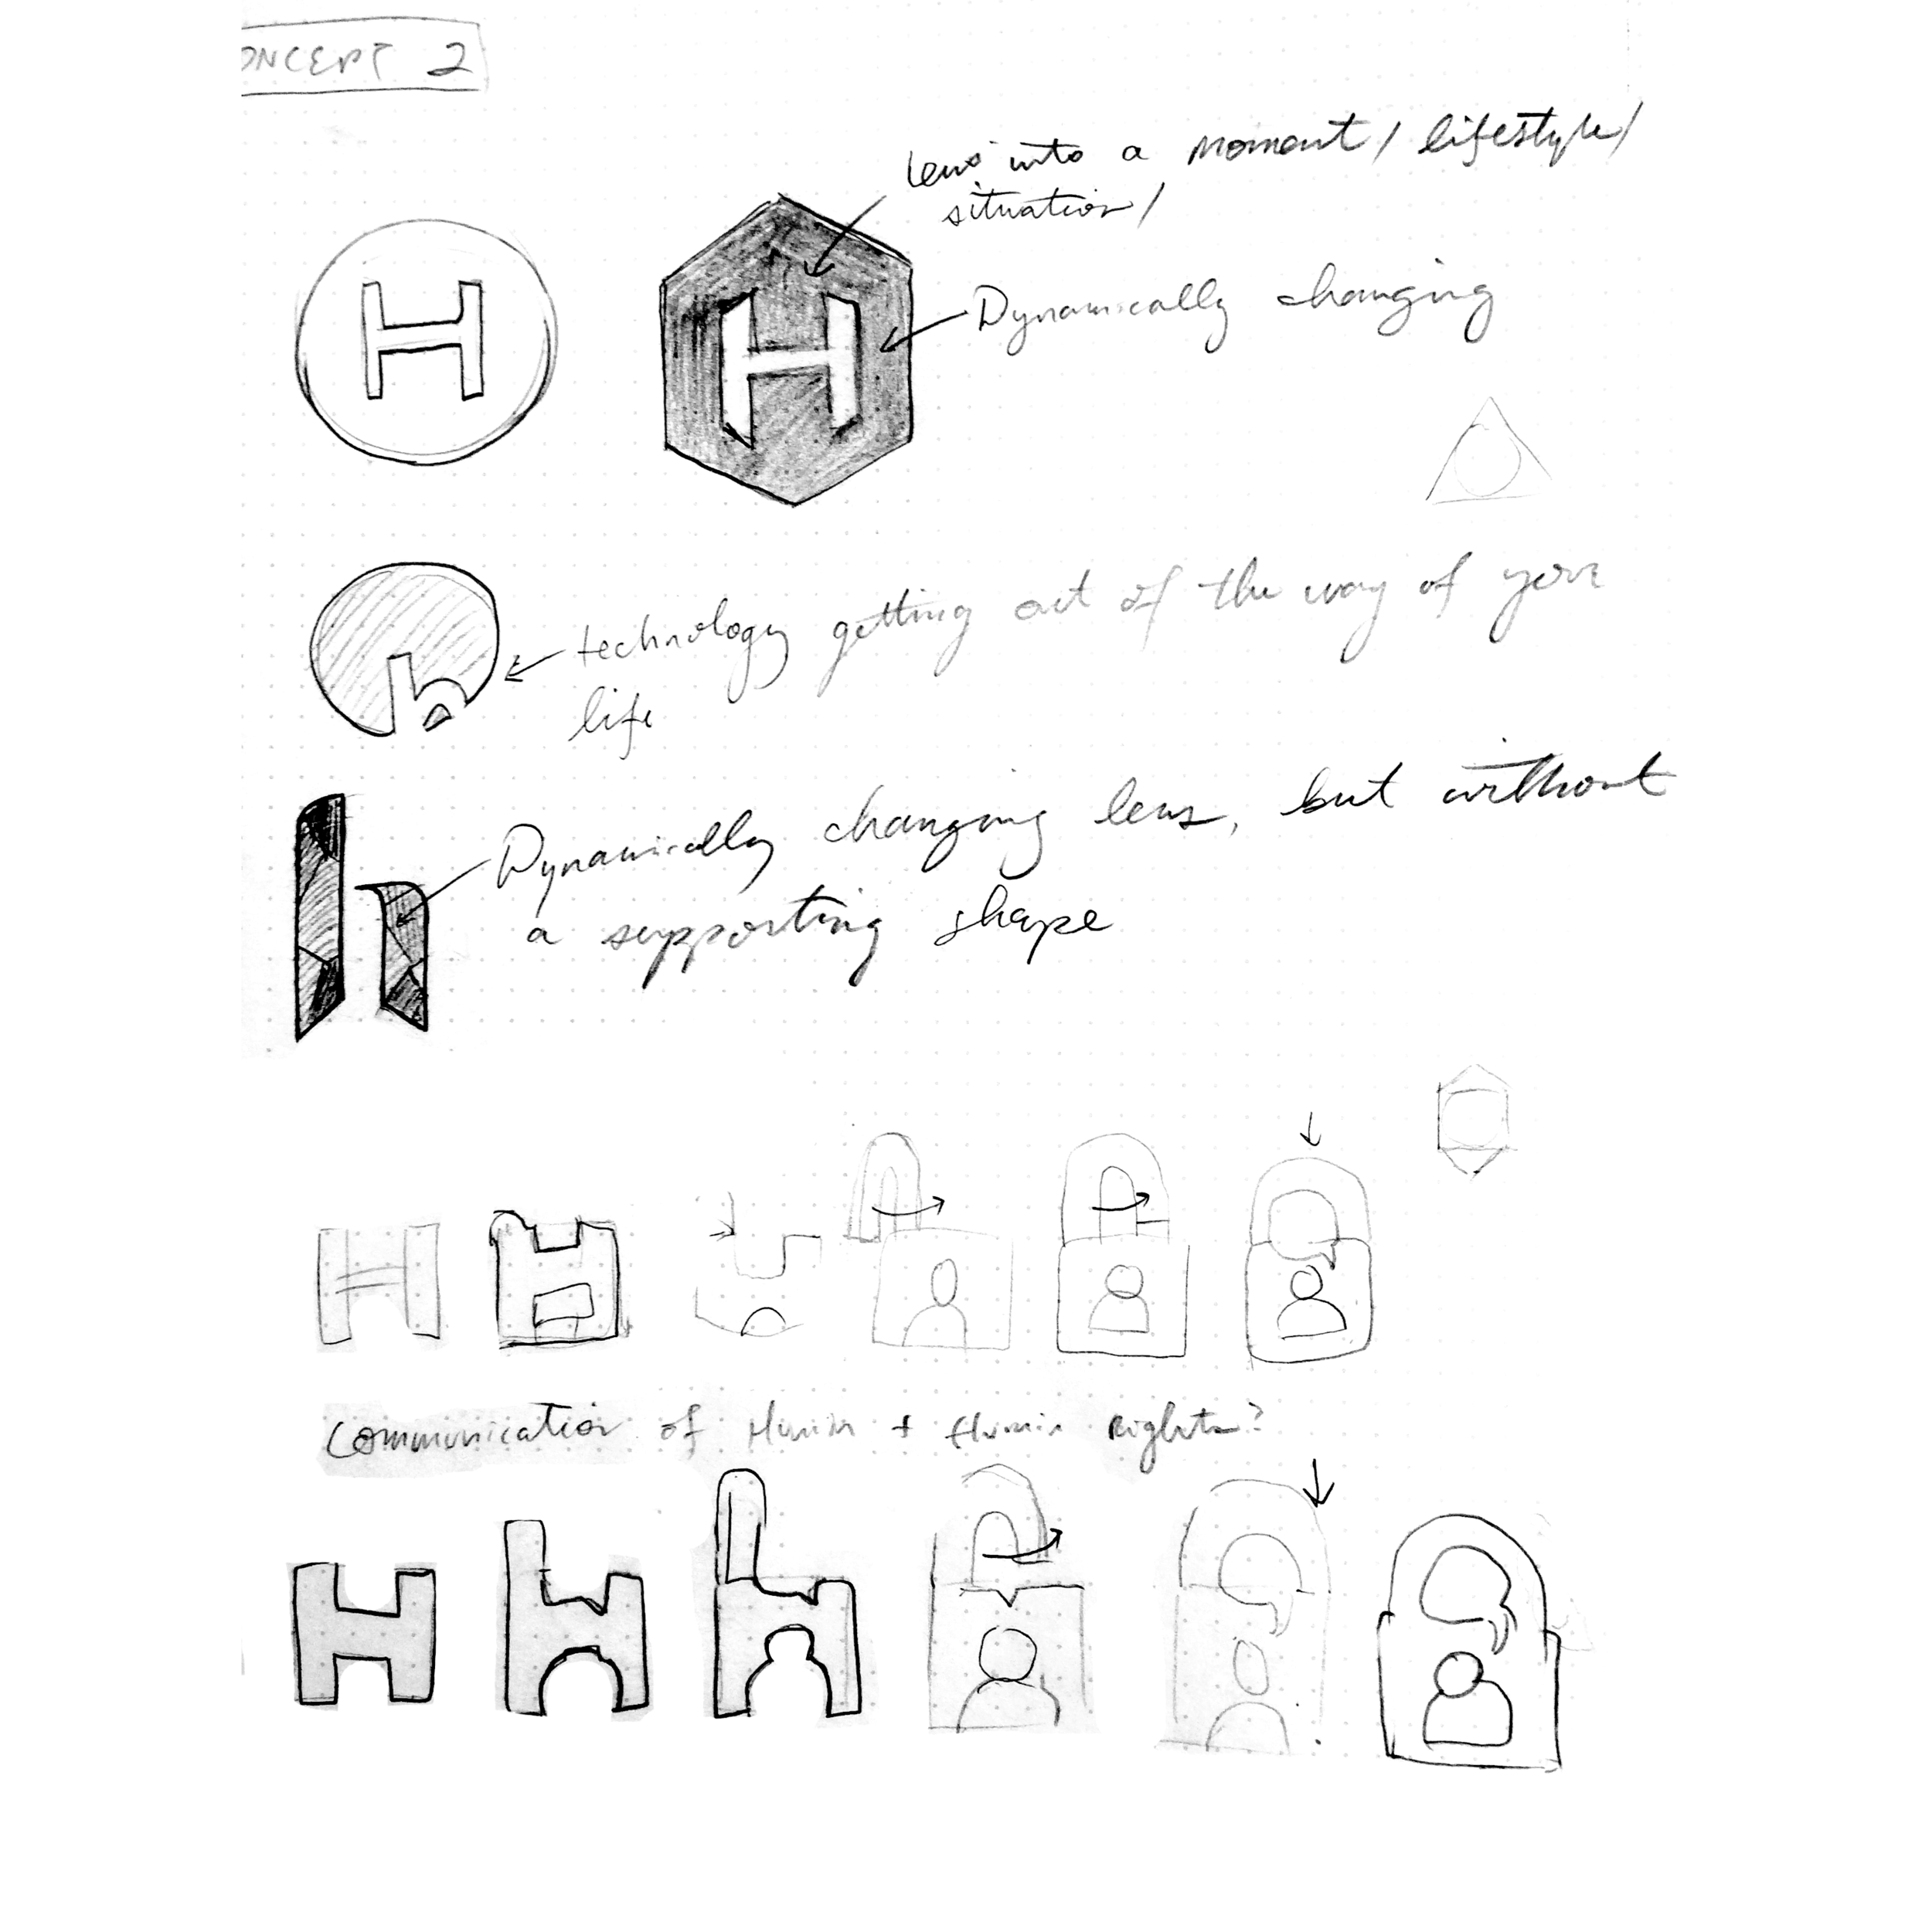 ONCEPT 2
Lens into a moment / lifestyle /
situation /
H
H
Dynamically changing
technology getting out of the way of your
life
h
Dynamically changing lens, but without
a supporting shape
h
H
Communication of Humin + Humin Rights?
H